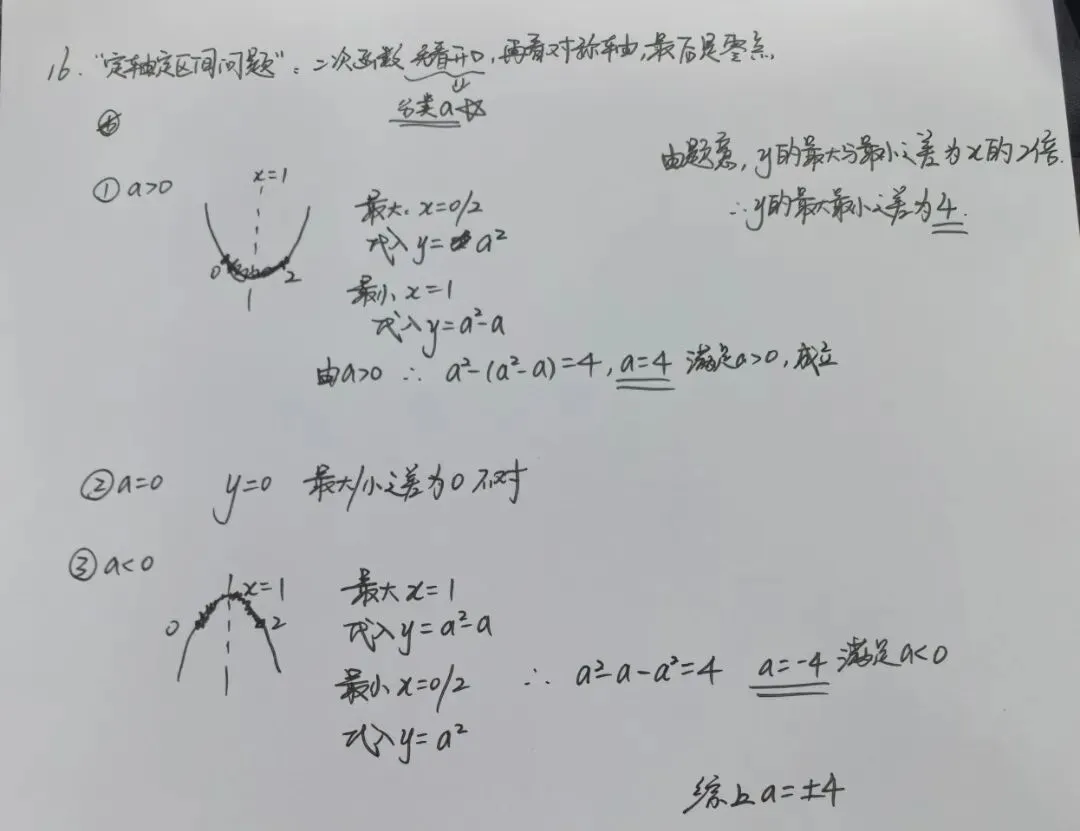 16. "定轴定区间问题"：二次函数 先看开口, 再看对称轴, 最后是零点
⇓
分类a
由题意, y的最大与最小之差为x的2倍.
∴y的最大最小之差为4.
① a>0
x=1
0 2
1
最大. x=0/2
代入 y= a²
最小, x=1
代入y=a²-a
由a>0 ∴ a²-(a²-a)=4, a=4 满足a>0, 成立
② a=0 y=0 最大/小之差为0 不对
③ a<0
x=1
0 2
最大 x=1
代入 y=a²-a
最小 x=0/2
代入 y=a²
∴ a²-a-a²=4 a=-4 满足a<0
综上 a=±4